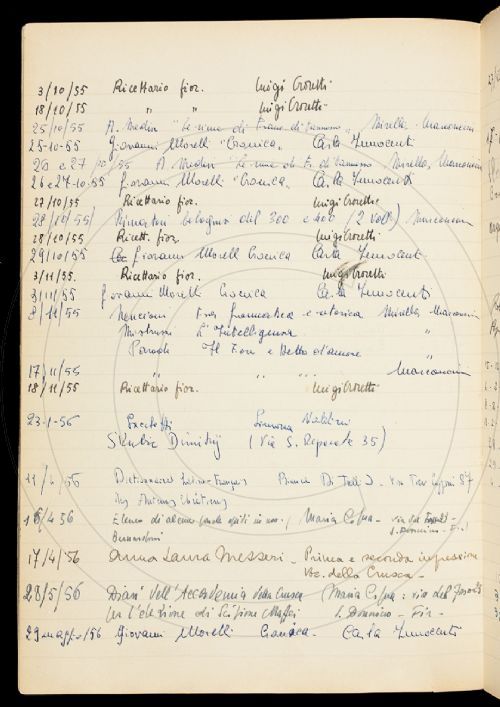 3/10/55 Ricettario fior. Luigi Crocetti
18/10/55 " " Luigi Crocetti
25/10/55 A. Medin "Le rime di Franc. di Vannozzo" Mirella Marconcini
25-10-55 Giovanni Morelli "Cronica" Carla Innocenti
26 e 27/10 55 A. Medin "Le rime di F. di Vannozzo Mirella Marconcini
26 e 27-10-55 Giovanni Morelli "Cronica" Carla Innocenti
27/10/55 Ricettario fior. Luigi Crocetti
28/10/55 Rimatori bolognesi del 300 e 400 (2 volte) Marconcini
28/10/55 Ricett. fior. Luigi Crocetti
29/10/55 Giovanni Morelli Cronica Carla Innocenti
3/11/55. Ricettario fior. Luigi Crocetti
3/11/55 Giovanni Morelli Cronica Carla Innocenti
8/11/55 Nencioni Fra grammatica e retorica Mirella Marconcini
Mistruzzi L'Intelligenza "
Parodi Il Fiore e Detto d'amore "
17/11/55 " " " " Marconcini
18/11/55 Ricettario fior. Luigi Crocetti
23-1-56
Skubic Dimitrij (Via S. Reparata 35)
11/4/56 Dictionnaire Latin-Français Bianca
des Auteurs chrétiens
16/4 56 Elenco di alcune parole oggidì in uso / Maria Cigna - via del
Bernardoni S. Domenico - Fi)
17/4/56 Anna Laura Messeri - Prima e seconda impressione
Voc. della Crusca -
28/5/56 Diari dell'Accademia della Crusca (Maria Cigna: via del
per l'elezione di Scipione Maffei S. Domenico - Fir -
29 maggio/56 Giovanni Morelli Cronica - Carla Innocenti